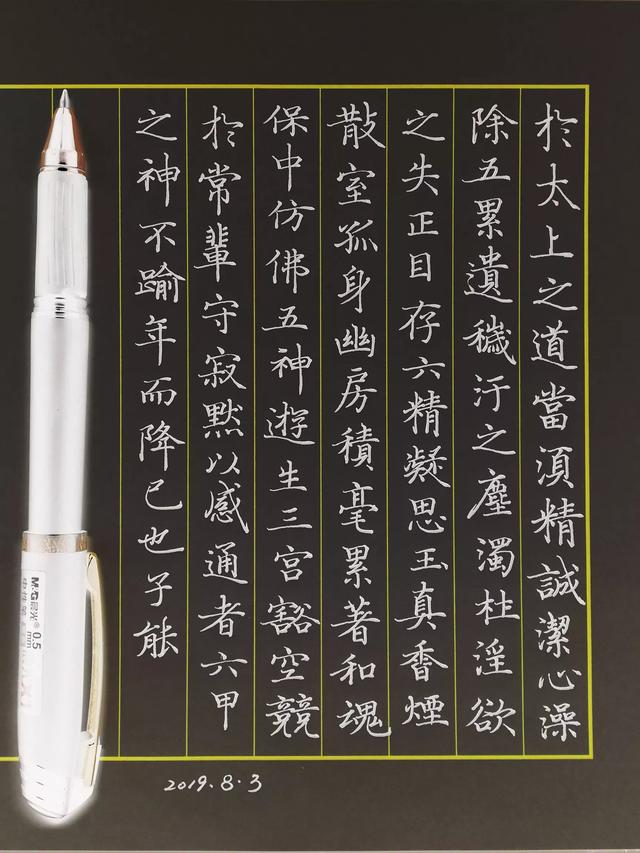 於太上之道當須精誠潔心澡
除五累遺穢汙之塵濁杜淫欲
之失正目存六精凝思玉真香煙
散室孤身幽房積毫累著和魂
保中仿佛五神遊生三宮豁空競
於常輩守寂默以感通者六甲
之神不踰年而降已也子能
2019.8.3
M&G晨光®
0.5
mm